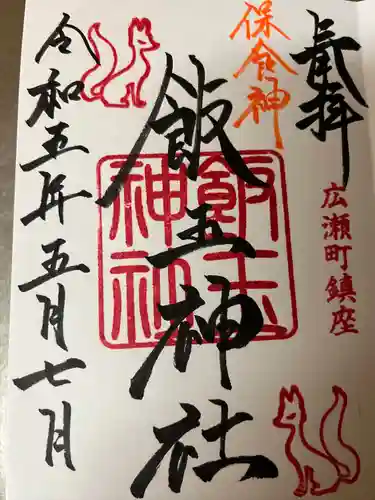 奉拝
保食神
広瀬町鎮座
飯玉神社
飯玉神社
令和五年五月七日